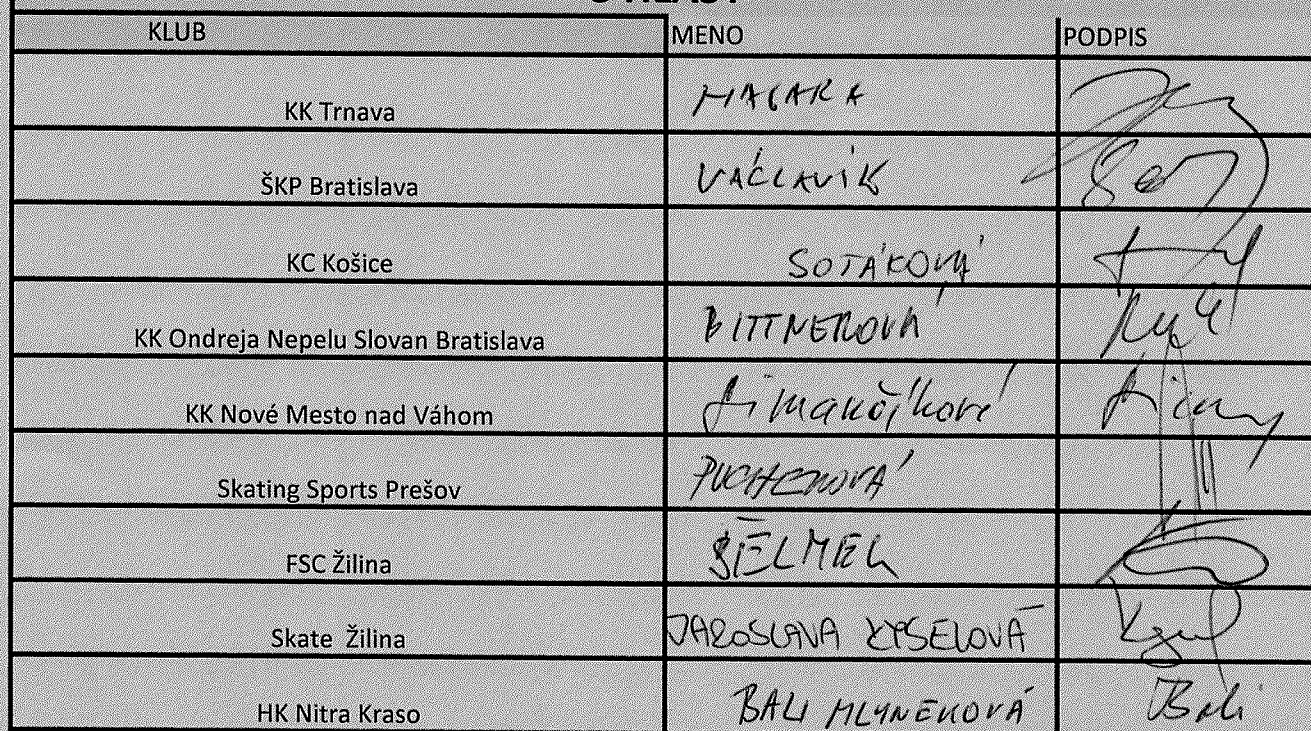 KLUB MENO PODPIS
KK Trnava MACARA
ŠKP Bratislava VÁCLAVÍK
KC Košice SOTÁKOVÁ
KK Ondreja Nepelu Slovan Bratislava BITTNEROVÁ
KK Nové Mesto nad Váhom Simančíková
Skating Sports Prešov PUCHEROVÁ
FSC Žilina
Skate Žilina JAROSLAVA KYSELOVÁ
HK Nitra Kraso BALI MLYNEKOVÁ Bali